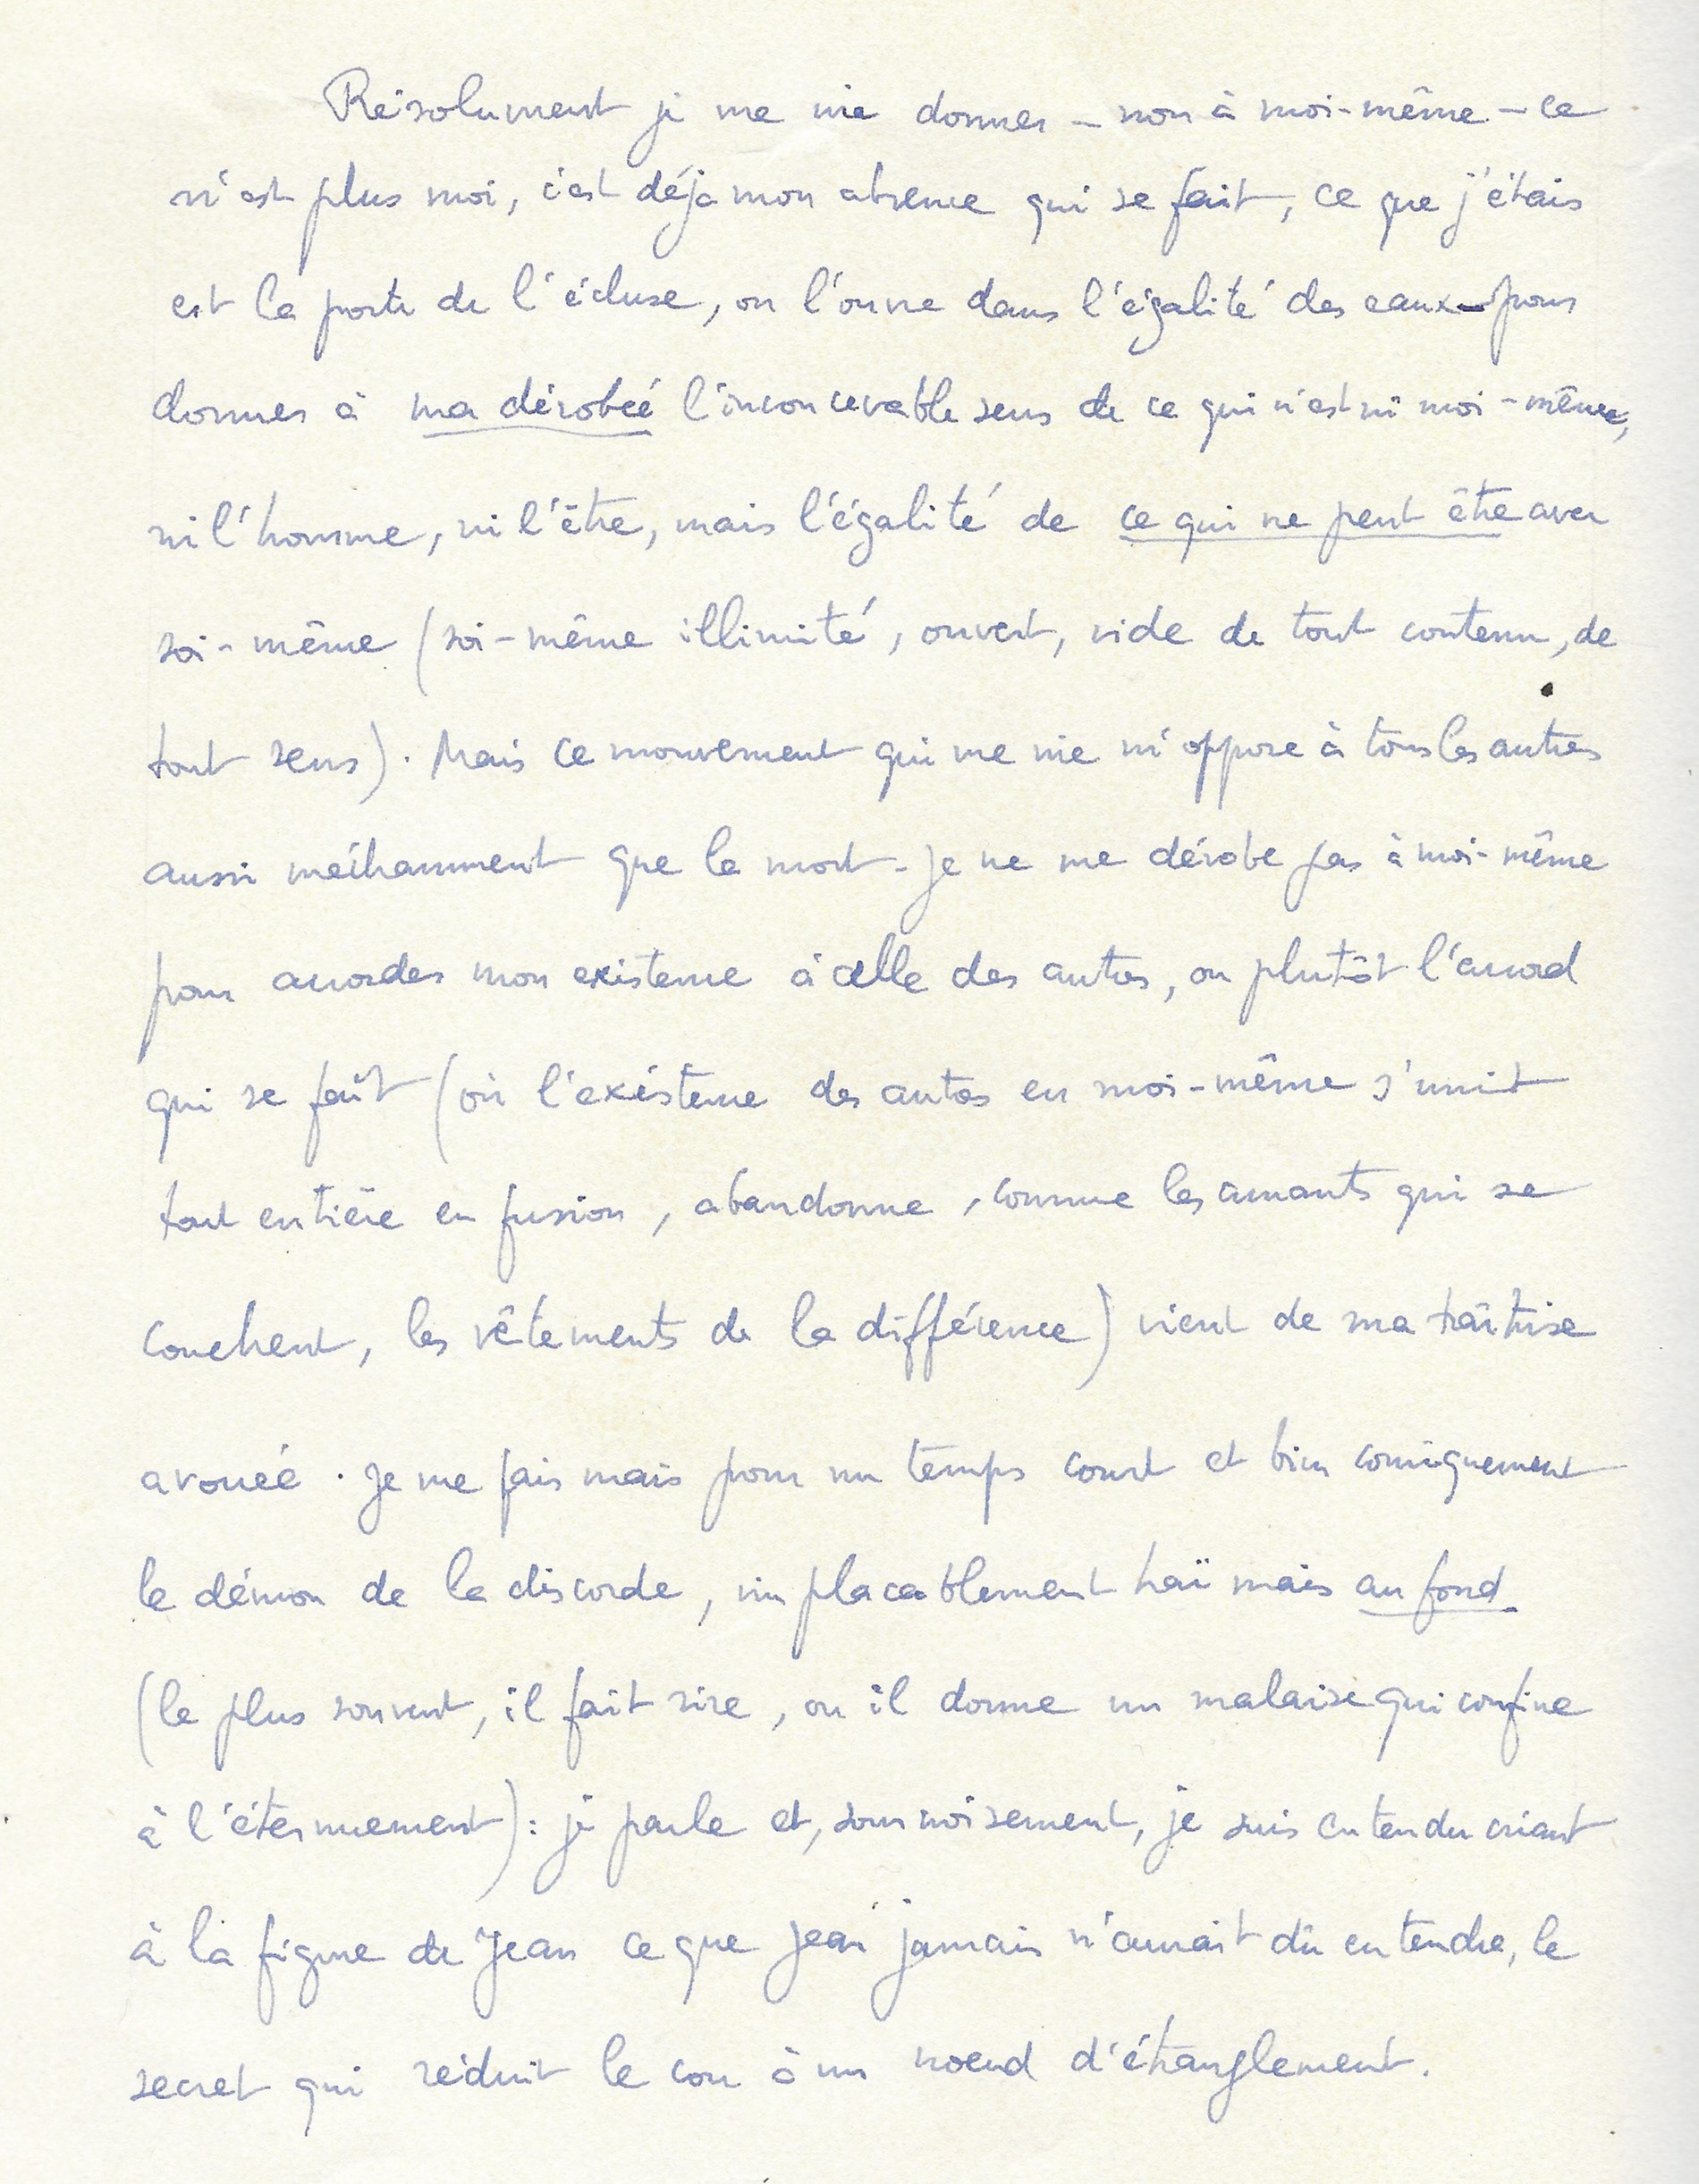 Résolument je me nie donner – non à moi-même – ce
n'est plus moi, c'est déjà mon absence qui se fait, ce que j'étais
est la porte de l'écluse, on l'ouvre dans l'égalité des eaux – pour
donner à ma dérobée l'inconcevable sens de ce qui n'est ni moi-même,
ni l'homme, ni l'être, mais l'égalité de ce qui ne peut être avec
soi-même (soi-même illimité, ouvert, vide de tout contenu, de
tout sens). Mais ce mouvement qui me nie m'oppose à tous les autres
aussi méchamment que la mort. Je ne me dérobe pas à moi-même
pour accorder mon existence à celle des autres, ou plutôt l'accord
qui se fait (où l'existence des autres en moi-même s'unit
tout entière en fusion, abandonne, comme les amants qui se
couchent, les vêtements de la différence) vient de ma traîtrise
avouée. Je me fais mais pour un temps court et bien comiquement
le démon de la discorde, implacablement haï mais au fond
(le plus souvent, il fait rire, ou il donne un malaise qui confine
à l'éternuement) : je parle et, sournoisement, je suis entendu criant
à la figure de Jean ce que Jean jamais n'aurait dû entendre, le
secret qui réduit le cou à un noeud d'étranglement.